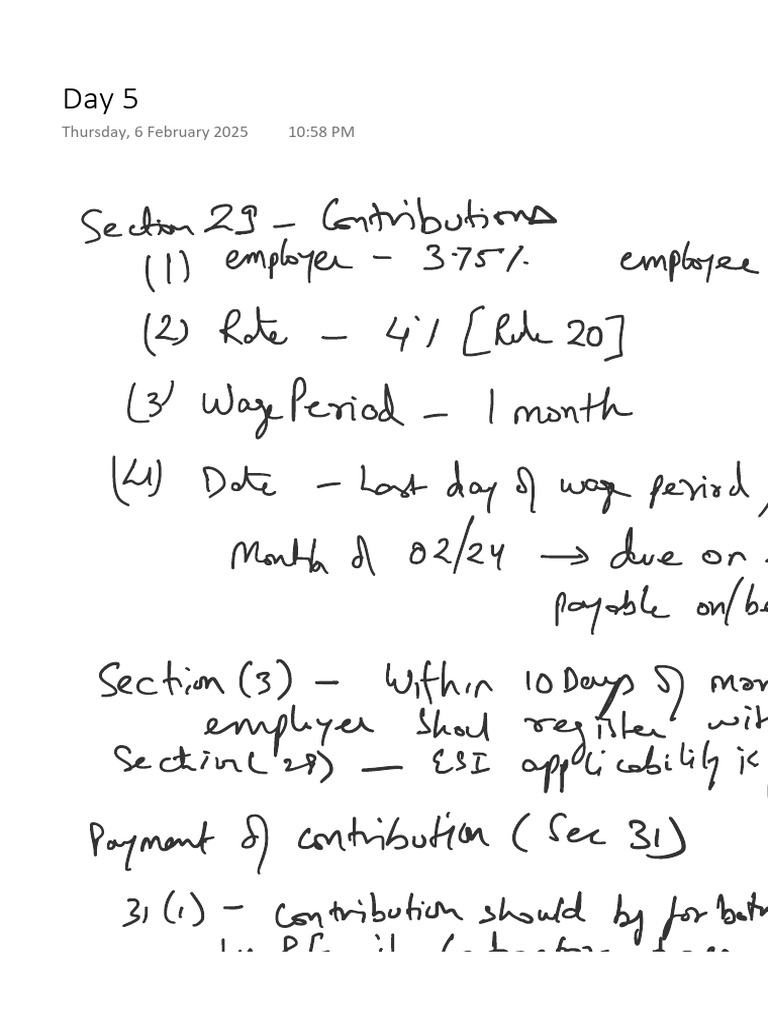 Day 5
Thursday, 6 February 2025 10:58 PM
Section 29 - Contributions
(1) employer - 3.75% employee
(2) Rate - 4% [Rule 20]
(3) Wage Period - 1 month
(4) Date - Last day of wage period,
Month of 02/24 → due on
payable on/be
Section (3) - Within 10 Days of
employer shoul register wit
Section (28) - ESI applicability is
Payment of contribution (Sec 31)
31(1) - Contribution should by for both